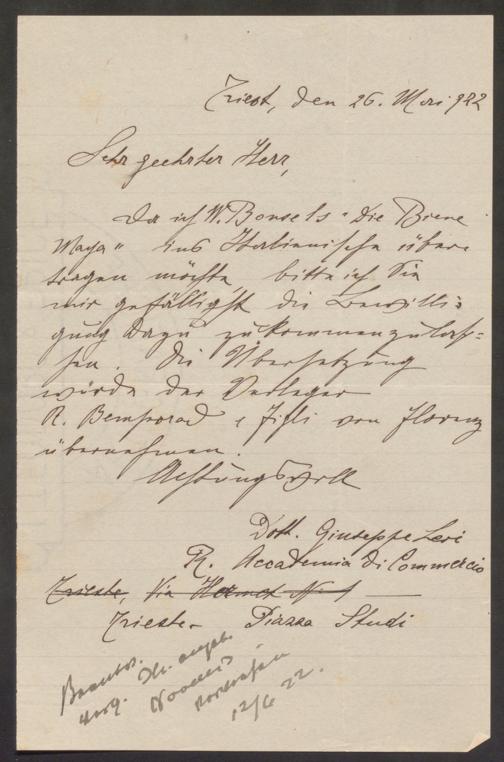 Triest, den 26. Mai 922
Sehr geehrter Herr,
Da ich W. Bonsels „Die Biene
Maja" ins Italienische über-
tragen möchte, bitte ich Sie
mir gefälligst die Bewilli-
gung dazu zukommenzulas-
sen. Die Übersetzung
würde der Verleger
R. Bemporad & Figli von Florenz
übernehmen.
Achtungsvoll
Dott. Giuseppe Levi
R. Accademia di Commercio
Trieste, Via
Trieste - Piazza Studi
12/6 22.